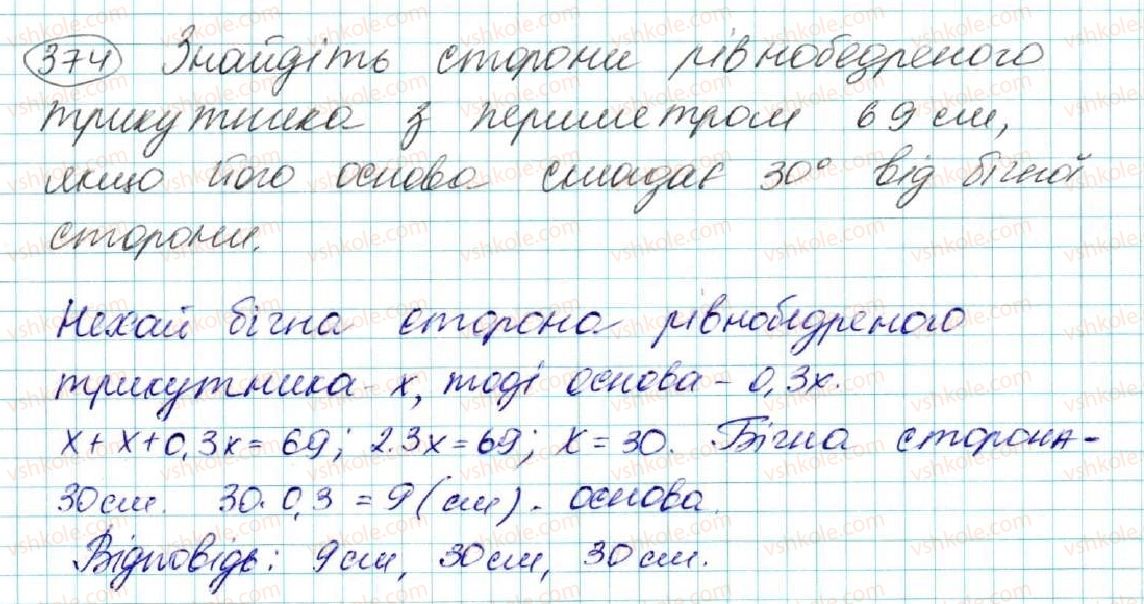 374 Знайдіть сторони рівнобедреного
трикутника з периметром 69 см,
якщо його основа складає 30° від бічної
сторони.
Нехай бічна сторона рівнобедреного
трикутника - x, тоді основа - 0,3x.
x + x + 0,3x = 69; 2.3x = 69; x = 30. Бічна сторона -
30 см. 30 · 0,3 = 9 (см) - основа.
Відповідь: 9 см, 30 см, 30 см.